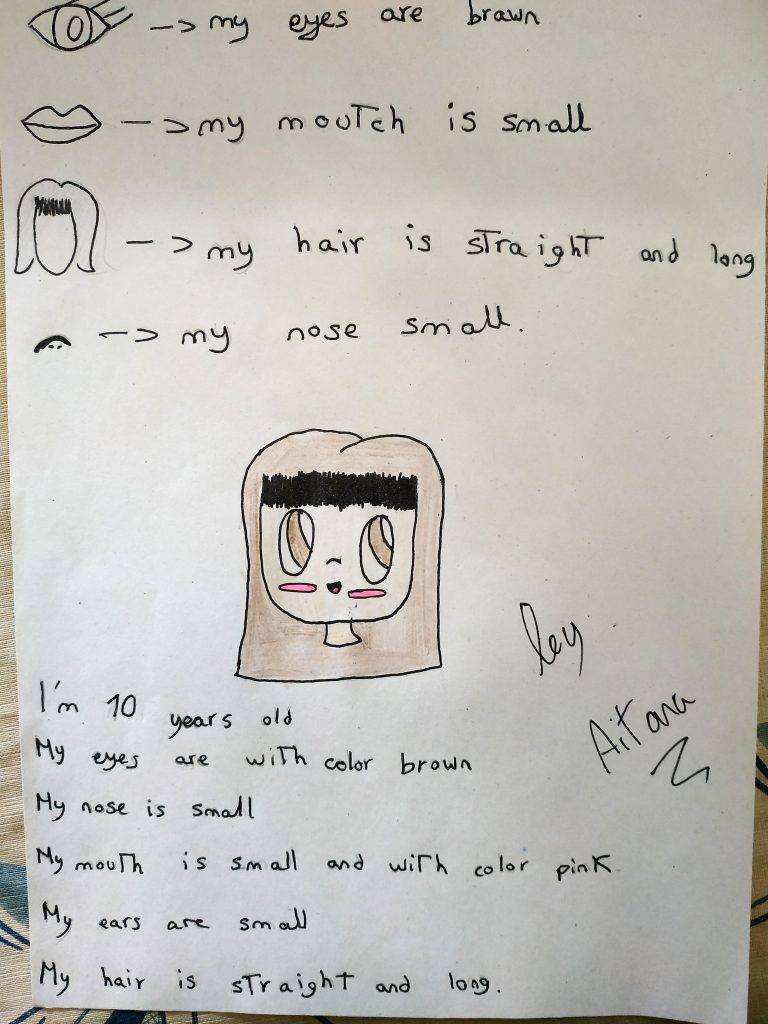 my eyes are brawn
my moutch is small
my hair is straight and long
my nose small.
by
Aitana
I'm 10 years old
My eyes are with color brown
My nose is small
My mouth is small and with color pink
My ears are small
My hair is straight and long.